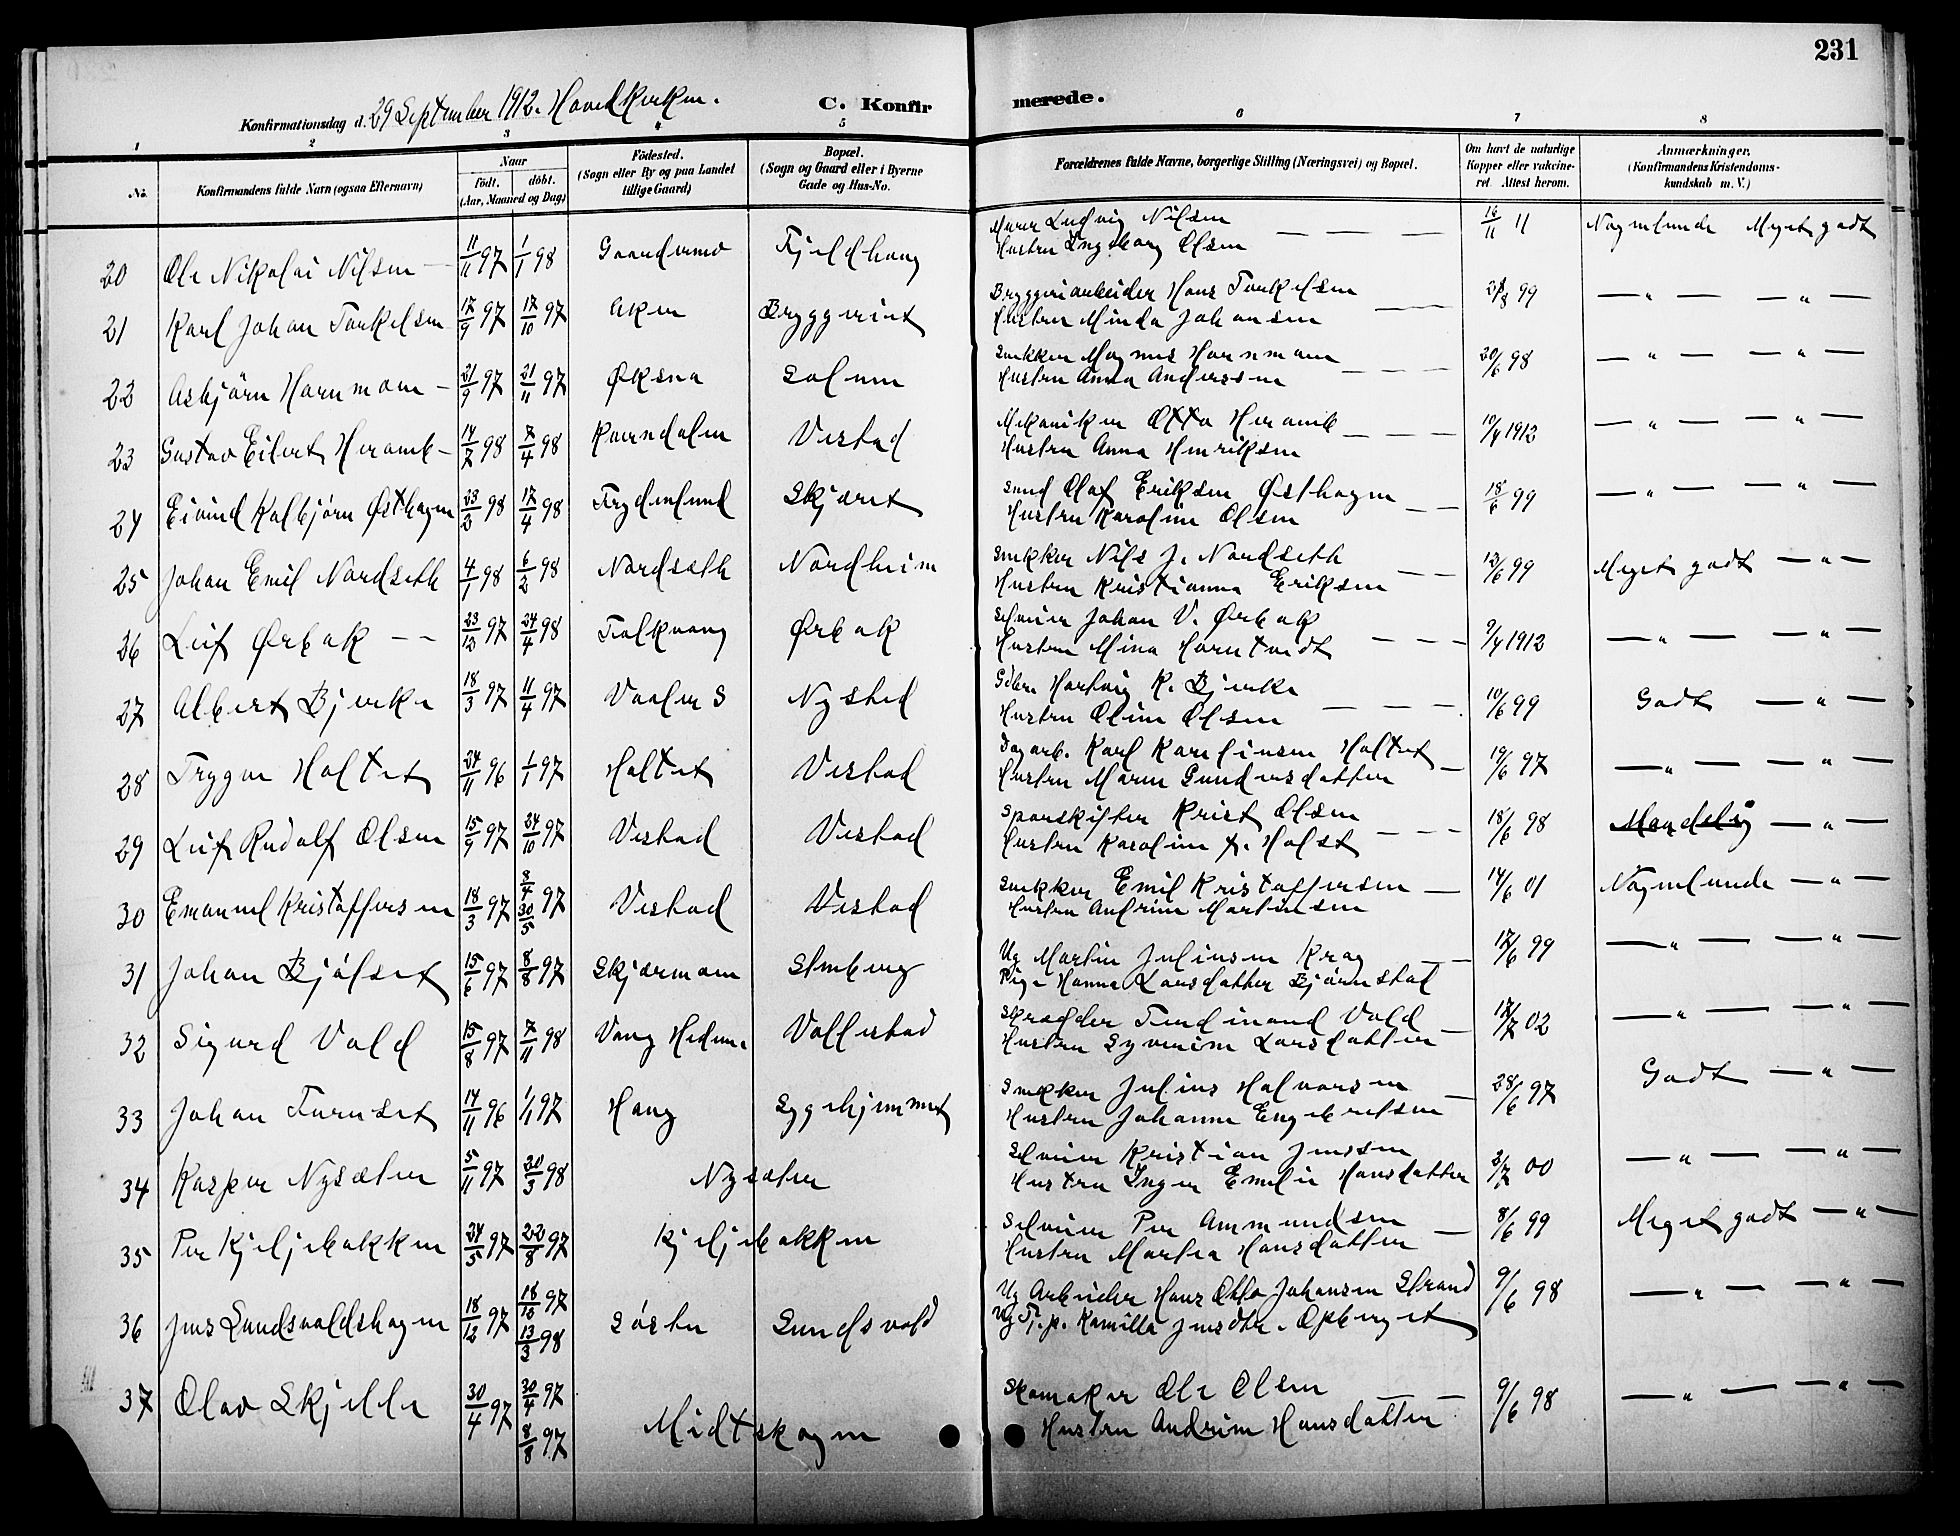 231
Konfirmationsdag d. 29 September 1912. Hovedkirken.
C. Konfirmerede.
1 2 3 4 5 6 7 8
No. Konfirmandens fulde Navn (ogsaa Efternavn) Naar født. døbt. (Aar, Maaned og Dag) Fødested. (Sogn eller By og paa Landet tillige Gaard) Bopæl. (Sogn og Gaard eller i Byerne Gade og Hus-No. Forældrenes fulde Navne, borgerlige Stilling (Næringsvei) og Bopæl. Om havt de naturlige Kopper eller vakcineret. Attest herom. Anmærkninger. (Konfirmandens Kristendomskundskab m. V.)
20 Ole Nikolai Nilsen — 11/11 97 1/1 98 Gaardermo Fjeldhaug Murer Ludvig Nilsen — — — 16/11 11 Nogenlunde Meget godt
Hustru Ingeborg Olsen
21 Karl Johan Torkelsen 17/9 97 17/10 97 Aker Bryggeriet Bryggeriarbeider Hans Torkelsen — — 21/8 99 — " — — " —
Hustru Minda Johansen
22 Asbjörn Hornmoen — 21/9 97 21/11 97 Øksna Solum Snekker Magnus Hornmoen — — — 20/6 98 — " — — " —
Hustru Anna Anderssen
23 Gustav Eilert Heramb — 14/2 98 7/4 98 Kverndalen Vestad Mekaniker Otto Heramb — — — 10/4 1912 — " — " —
Hustru Anna Henriksen
24 Eivind Kolbjörn Østhagen 23/2 98 17/4 98 Frydenlund Skjæret Smed Olaf Eriksen Østhagen — — 18/6 99 — " — — " —
Hustru Karoline Olsen
25 Johan Emil Nordseth 4/1 98 6/2 98 Nordseth Nordheim Snekker Nils J. Nordseth — — 12/6 99 Meget godt — " —
Hustru Kristianna Eriksen
26 Leif Ørbak — — 23/12 97 24/4 98 Folkvang Ørbak Selveier Johan V. Ørbak — — — 9/4 1912 — " — — " —
Hustru Mina Horntvedt
27 Albert Bjerke 18/3 97 11/4 97 Vaaler S Nysted Hartvig K. Bjerke — — — 10/6 99 Godt — " —
Hustru Oline Olsen
28 Trygve Holtet 24/11 96 1/1 97 Holtet Vestad Dagarb. Karl Karelinsen Holtet — 19/6 97 — " — — " —
Hustru Maren Gundersdatter
29 Leif Rudolf Olsen 15/9 97 24/10 97 Vestad Vestad Sporskifter Krist. Olsen — — — 18/6 98 Mandelig — " —
Hustru Karoline f. Holst
30 Emanuel Kristoffersen 18/3 97 8/4 30/5 97 Vestad Vestad Snekker Emil Kristoffersen — 14/6 01 Nogenlunde — " —
Hustru Andrine Martinsen
31 Johan Bjölset 15/6 97 8/8 97 Skjærmoen Stenberg Ug Martin Juliussen Krag — — 12/6 99 — " — — " —
Pige Hanna Larsdatter Björnstad
32 Sigurd Vold 15/8 97 7/11 98 Vang Hedem. Vollestad Skrædder Ferdinand Vold — 12/7 02 — " — — " —
Hustru Syverine Larsdatter
33 Johan Furuset 14/11 96 1/1 97 Haug Sygehjemmet Snekker Julius Halvorsen — 28/6 97 Godt — " —
Hustru Johanne Engebretsen
34 Kasper Nysæter 5/11 97 20/3 98 Nysæter Selveier Kristian Jenssen 3/7 00 — " — — " —
Hustru Inger Emilie Hansdatter
35 Per Kjeljebakken 24/5 97 22/8 97 Kjeljebakken Selveier Per Ammundsen — 8/6 99 Meget godt — " —
Hustru Martea Hansdatter
36 Jens Sundsvoldshagen 18/12 97 18/12 97 13/3 98 Söstu Sundsvold Ug Arbeider Hans Otto Johansen Strand 9/6 98 — " — — " —
Ug Tj.p. Kamilla Jensdtr. Opberget
37 Olav Skjelle 30/4 97 30/4 97 8/8 97 Midtskogen Skomaker Ole Olsen — — 9/6 98 — " — — " —
Hustru Andrine Hansdatter